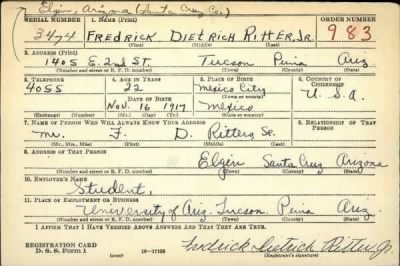 Elgin, Arizona (Santa Cruz Co.)
SERIAL NUMBER 1. NAME (Print) ORDER NUMBER
3474 FREDRICK DIETRICH RITTER, JR. 983
(First) (Middle) (Last)
2. ADDRESS (Print)
1405 E. 2nd ST. Tucson Pima Ariz
(Number and street or R. F. D. number) (Town) (County) (State)
3. TELEPHONE 4. AGE IN YEARS 5. PLACE OF BIRTH 6. COUNTRY OF CITIZENSHIP
4055 22 Mexico City U.S.A.
DATE OF BIRTH (Town or county)
Nov. 16 1917 Mexico
(Exchange) (Number) (Mo.) (Day) (Yr.) (State or country)
7. NAME OF PERSON WHO WILL ALWAYS KNOW YOUR ADDRESS 8. RELATIONSHIP OF THAT PERSON
Mr. F. D. Ritter, Sr.
(Mr., Mrs., Miss) (First) (Middle) (Last)
9. ADDRESS OF THAT PERSON
Elgin Santa Cruz Arizona
(Number and street or R. F. D. number) (Town) (County) (State)
10. EMPLOYER'S NAME
Student,
11. PLACE OF EMPLOYMENT OR BUSINESS
University of Ariz. Tucson Pima Ariz.
(Number and street or R. F. D. number) (Town) (County) (State)
I AFFIRM THAT I HAVE VERIFIED ABOVE ANSWERS AND THAT THEY ARE TRUE.
REGISTRATION CARD
D. S. S. Form 1 (over) Fredrick Dietrich Ritter, Jr.
(Registrant's signature)